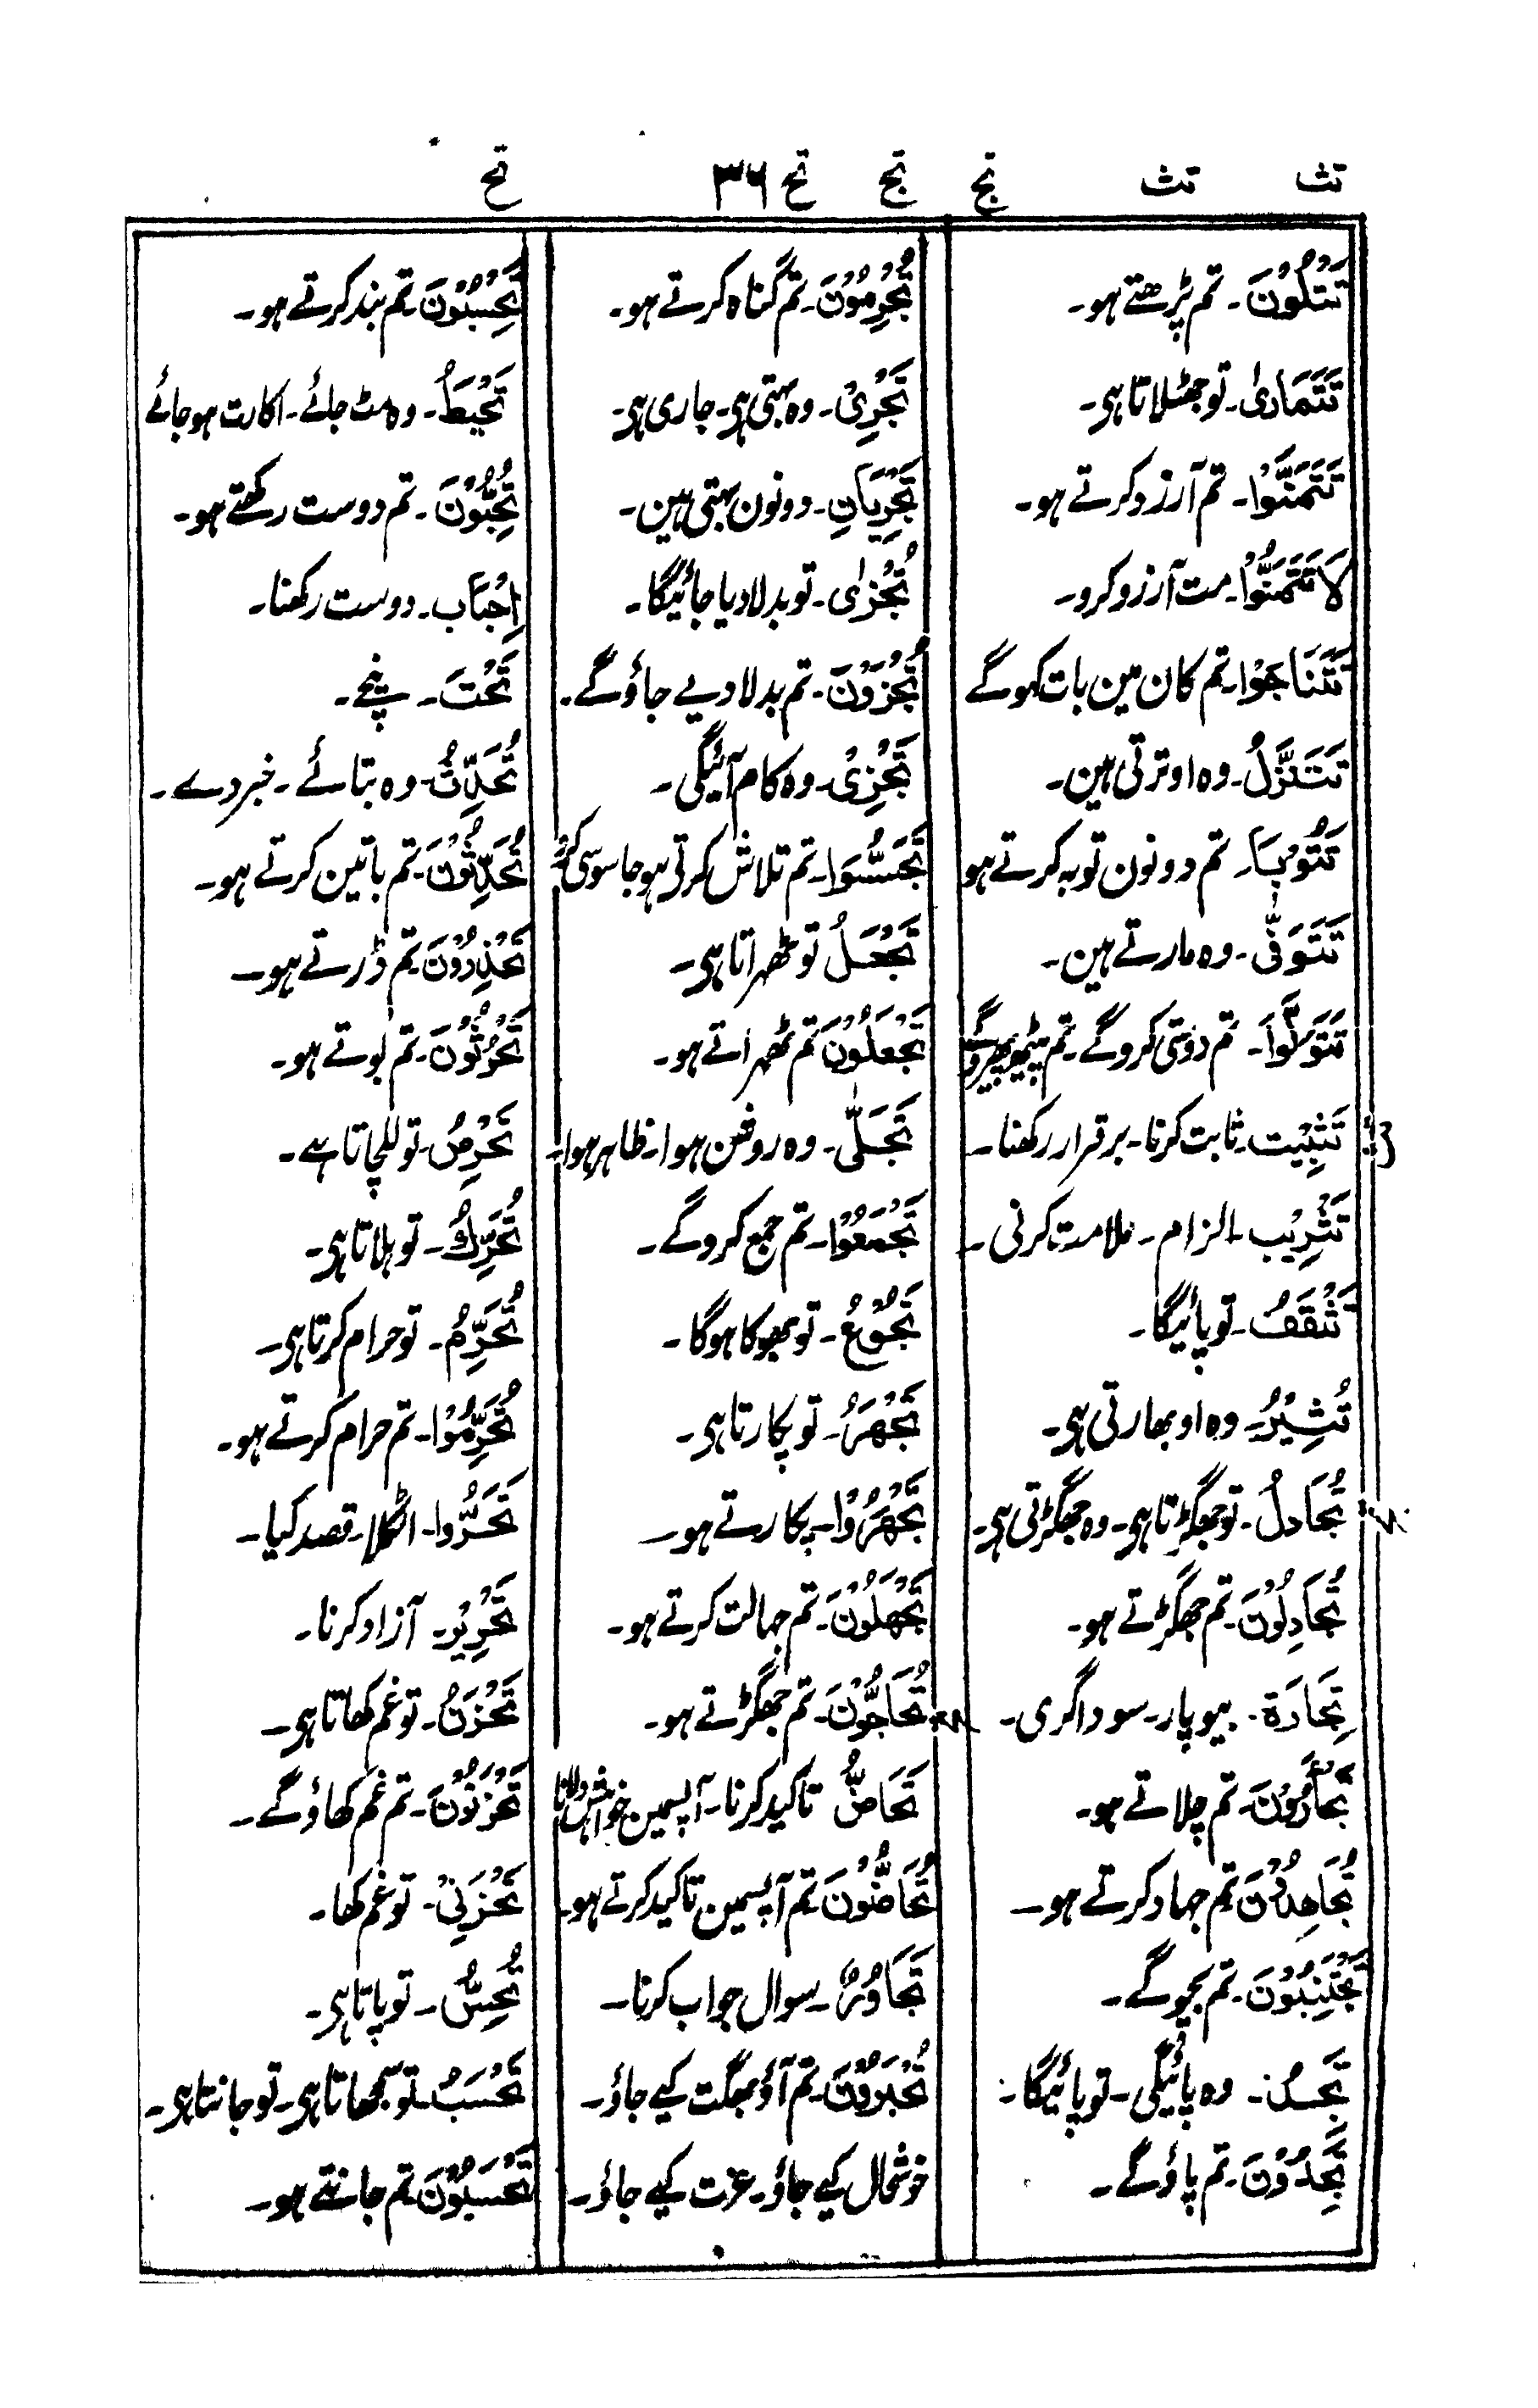 تث تث تج تج تح ٣٦ تح
تَتْلُوْنَ۔ تم پڑھتے ہو۔
تَتَمَارٰى۔ تو جھٹلاتا ہی۔
تَتَمَنَّوْا۔ تم آرزو کرتے ہو۔
لَا تَتَمَنَّوْا۔ مت آرزو کرو۔
تَتَنَاجَوْا۔ تم کان مین بات کہو گے
تَتَنَزَّلُ۔ وہ اوترتی ہین۔
تَتُوْبَا۔ تم دونون توبہ کرتے ہو
تَتَوَفّٰى۔ وہ مارتے ہین۔
تَتَوَلَّوْا۔ تم دوستی کرو گے۔ تم پیٹھ پھیرو گے
تَثْبِيْت۔ ثابت کرنا۔ برقرار رکھنا۔
تَثْرِيْب۔ الزام۔ ملامت کرنی۔
تَثْقَفُ۔ تو پائیگا۔
تُثِيْرُ۔ وہ اوبھارتی ہی۔
تُجَادِلُ۔ تو جھگڑتا ہی۔ وہ جھگڑتی ہی۔
تُجَادِلُوْنَ۔ تم جھگڑتے ہو۔
تِجَارَة۔ بیوپار۔ سوداگری۔
تَجْأَرُوْنَ۔ تم چلاتے ہو۔
تُجَاهِدُوْنَ تم جہاد کرتے ہو۔
تَجْتَنِبُوْنَ۔ تم بچو گے۔
تَجِدُ۔ وہ پائیگی۔ تو پائیگا۔
تَجِدُوْنَ۔ تم پاؤ گے۔
تُجْرِمُوْنَ۔ تم گناہ کرتے ہو۔
تَجْرِىْ۔ وہ بہتی ہی۔ جاری ہی۔
تَجْرِيَانِ۔ دونون بہتی ہین۔
تُجْزٰى۔ تو بدلا دیا جائیگا۔
تُجْزَوْنَ۔ تم بدلا دیے جاؤ گے۔
تَجْزِىْ۔ وہ کام آئیگی۔
تَجَسَّسُوْا۔ تم تلاش کرتی ہو جاسوسی
تَجْعَلُ تو ٹھہراتا ہی۔
تَجْعَلُوْنَ تم ٹھہراتے ہو۔
تَجَلّٰى۔ وہ روشن ہوا۔ ظاہر ہوا۔
تَجْمَعُوْا۔ تم جمع کرو گے۔
تَجُوْعُ۔ تو بھوکا ہوگا۔
تَجْهَرُ۔ تو پکارتا ہی۔
تَجْهَرُوْا۔ پکارتے ہو۔
تَجْهَلُوْنَ۔ تم جہالت کرتے ہو۔
تُحَاجُّوْنَ۔ تم جھگڑتے ہو۔
تَحَاضُّ تاکید کرنا۔ آپسمین خواہش دلانا
تُحَاضُّوْنَ تم آپسمین تاکید کرتے ہو۔
تَحَاوُرٌ۔ سوال جواب کرنا۔
تُحْبَرُوْنَ۔ تم آؤ بھگت کیے جاؤ۔
خوشحال کیے جاؤ۔ عزت کیے جاؤ۔
تَحْبِسُوْنَ۔ تم بند کرتے ہو۔
تَحْبَطُ۔ وہ مٹ جائے۔ اکارت ہو جائے
تُحِبُّوْنَ۔ تم دوست رکھتے ہو۔
اِحْبَاب۔ دوست رکھنا۔
تَحْتَ۔ نیچے۔
تُحَدِّثُ۔ وہ بتائے۔ خبر دے۔
تُحَدِّثُوْنَ۔ تم باتین کرتے ہو۔
تَحْذَرُوْنَ۔ تم ڈرتے ہو۔
تَحْرُثُوْنَ۔ تم بوتے ہو۔
تَحْرِصُ۔ تو للچاتا ہے۔
تُحَرِّكُ۔ تو ہلاتا ہی۔
تُحَرِّمُ۔ تو حرام کرتا ہی۔
تُحَرِّمُوْا۔ تم حرام کرتے ہو۔
تَحَرَّوْا۔ اٹکلا۔ قصد کیا۔
تَحْرِيْرُ۔ آزاد کرنا۔
تَحْزَنُ۔ تو غم کھاتا ہی۔
تَحْزَنُوْنَ۔ تم غم کھاؤ گے۔
تَحْزَنِىْ۔ تو غم کھا۔
تُحِسُّ۔ تو پاتا ہی۔
تَحْسَبُ۔ تو سمجھاتا ہی۔ تو جانتا ہی۔
تَحْسَبُوْنَ۔ تم جانتے ہو۔